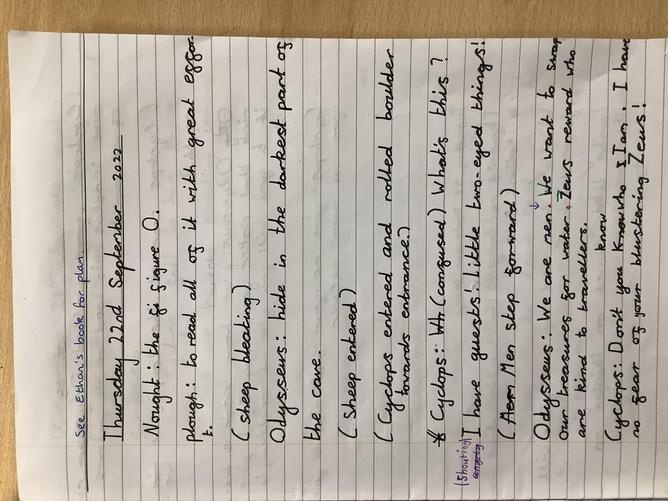 See Ethan's book for plan.
Thursday 22nd September 2022
Nought: the fi figure 0.
plough: to read all of it with great effor-
t.
(sheep bleating)
Odysseus: hide in the darkest part of
the cave.
(Sheep entered)
(Cyclops entered and rolled boulder
towards entrance.)
* Cyclops: Wh (confused) What's this?
(shouting) angrily
I have guests! Little two-eyed things!
(Men step forward)
Odysseus: We are men. We want to swap
our treasures for water. Zeus reward who
are kind to travellers.
know
Cyclops: Don't you Know who I am. I have
no fear of your blustering Zeus!